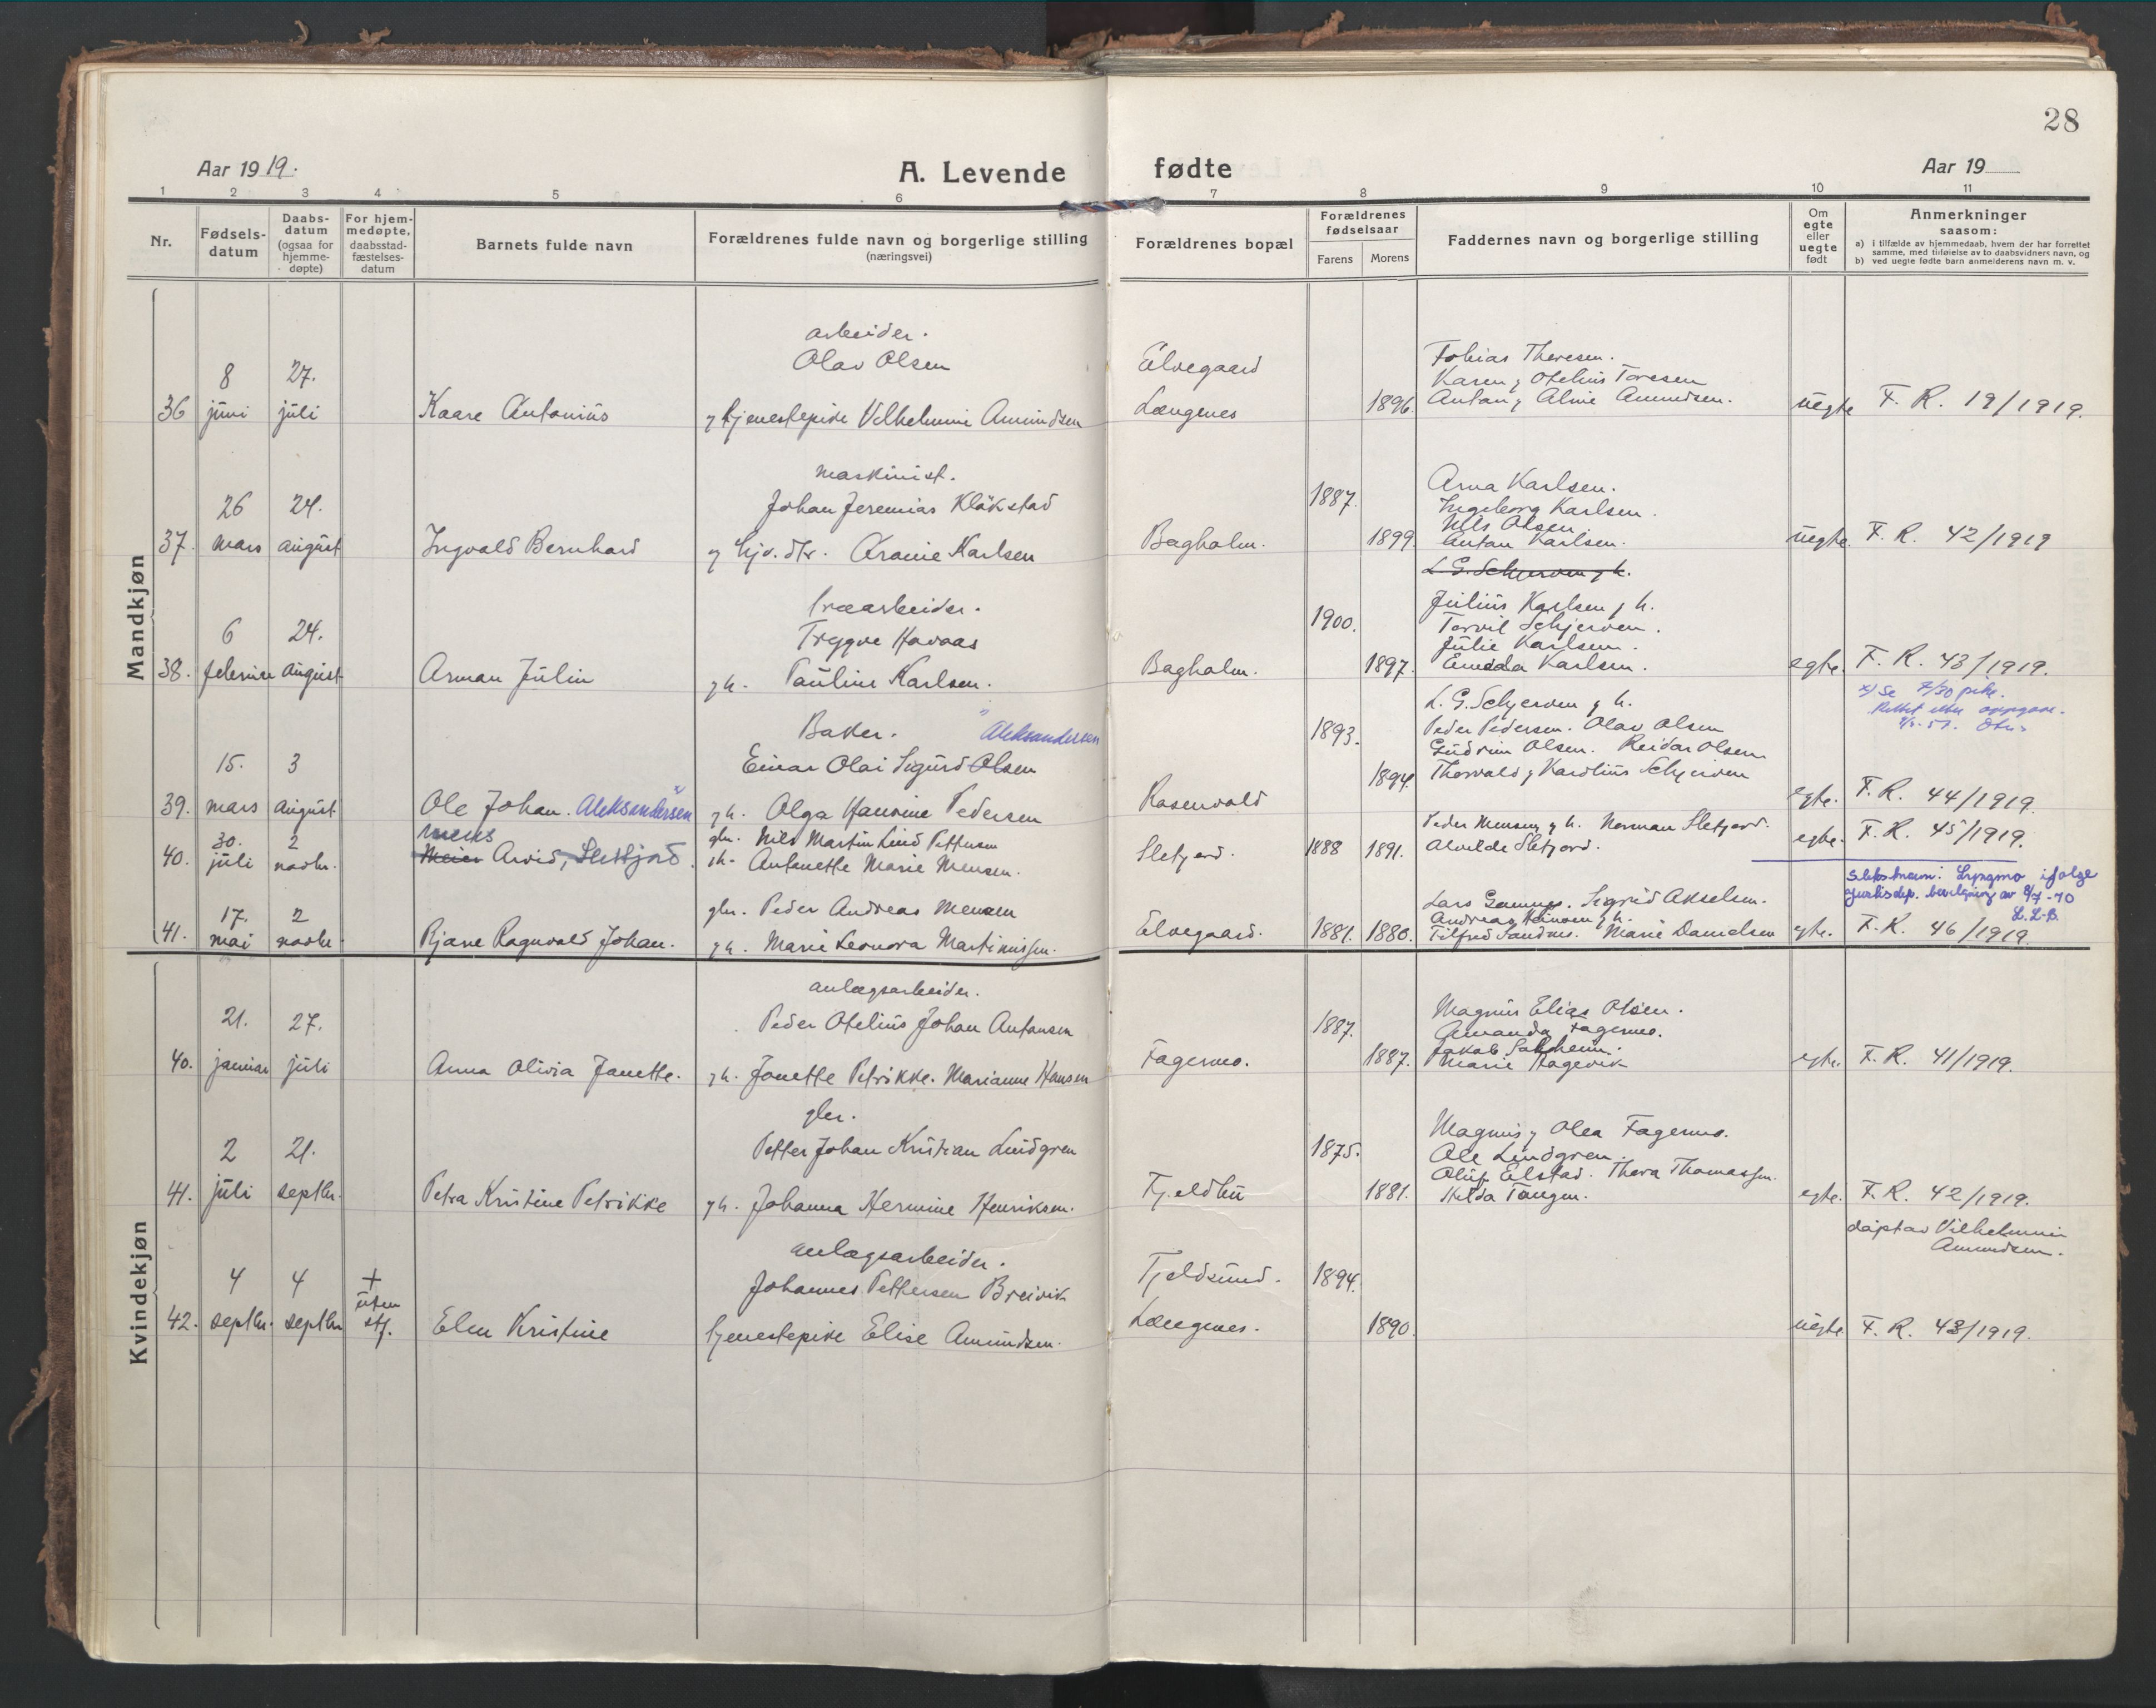 28
Aar 1919.
A. Levende
fødte
Aar 19
1 2 3 4 5 6 7 8 9 10 11
Nr.
Fødsels-
datum
Daabs-
datum
(ogsaa for
hjemme-
døpte)
For hjem-
medøpte,
daabsstad-
fæstelses-
datum
Barnets fulde navn
Forældrenes fulde navn og borgerlige stilling
(næringsvei)
Forældrenes bopæl
Forældrenes
fødselsaar
Farens Morens
Faddernes navn og borgerlige stilling
Om
egte
eller
uegte
født
Anmerkninger
saasom:
a) i tilfælde av hjemmedaab, hvem der har forrettet
samme, med tilføielse av to daabsvidners navn, og
b) ved uegte fødte barn anmelderens navn m. v.
Mandkjøn
arbeider.
8 27. Olav Olsen Elvegaard Tobias Theresen.
Karen og Otelius Toresen
36 juni juli Kaare Antonius og tjenestepike Vilhelmine Amundsen Længenes 1896. Antan og Alme Amundsen. uegte F. R. 19/1919.
maskinist.
26 24. Johan Jeremias Kläkstad 1887. Arna Karlsen.
Ingeborg Karlsen.
Nils Olsen.
37. mars august Ingvald Bernhard og hjv. dtr. Aramie Karlsen Bagholm. 1899. Antan Karlsen. uegte. F. R. 42/1919
L. G. Schjerven g h.
træarbeider.
6 24. Tryggve Havaas 1900. Julius Karlsen g h.
Torvil Schjerven.
Julie Karlsen.
38. februar august Arman Julin g h. Pauline Karlsen. Bagholm. 1897. Emelda Karlsen. egte. F. R. 43/1919.
x) Se 7/30 pk.
Rettet
Baker. Aleksandersen L. G. Schjerven g h.
15. 3 Einar Olai Sigurd Olsen 1893. Peder Pedersen. Olav Olsen
Gudrun Olsen. Reidar Olsen
39. mars august Ole Johan. Aleksandersen g h. Olga Haurine Pedersen Rosenvold 1894. Thorvald og Karolius Schjerven egte. F. R. 44/1919.
mens
30. 2 gbr. Nils Martin Lind Pettersen Peder Mensen g h. Norman Sletjord.
40. juli novbr. Arvid, Slettjord. g h. Antonette Marie Mensen. Sletjord. 1888 1891. Alvilde Sletjord. egte. F. R. 45/1919.
Slektsnavn: Lyngmo ifølge
justisdep. bevilgning av 8/7-70
L. L-B.
17. 2 gbr. Peder Andreas Mensen Lars Gamnes. Sigrid Akselsen.
41. mai novbr. Bjarne Ragnvald Johan. g h. Marie Leonora Martinussen. Elvegaard. 1881. 1880. Tilfred Sandnes. Marie Danielsen egte. F. R. 46/1919.
Kvindekjøn
anlægsarbeider.
21. 27. Peder Otelius Johan Antonsen 1887. Magnus Elias Olsen.
Amanda Fagermo.
Jakob Salhem.
40. januar juli Anna Olivia Janette. g h. Jonette Petrikke. Marianne Hansen Fagermo. 1887. Marie Hagevik egte. F. R. 41/1919.
gbr.
2 21. Petter Johan Kristian Lindgren 1875. Magnus og Olea Fagermo.
Ole Lindgren.
Oluf Elstad. Thora Thomassen.
41. juli septbr. Petra Kristine Petrikke g h. Johanna Hermine Henriksen. Fjeldbu 1881. Hilda Tangen. egte. F. R. 42/1919.
døpt av Vilhelmine
Amundsen.
anlægsarbeider.
4 4 + Johannes Pettersen Breivik Fjeldsund. 1894.
uten
42. septbr. septbr stf. Elen Kristine tjenestepike Elise Amundsen. Længenes. 1890. uegte F. R. 43/1919.